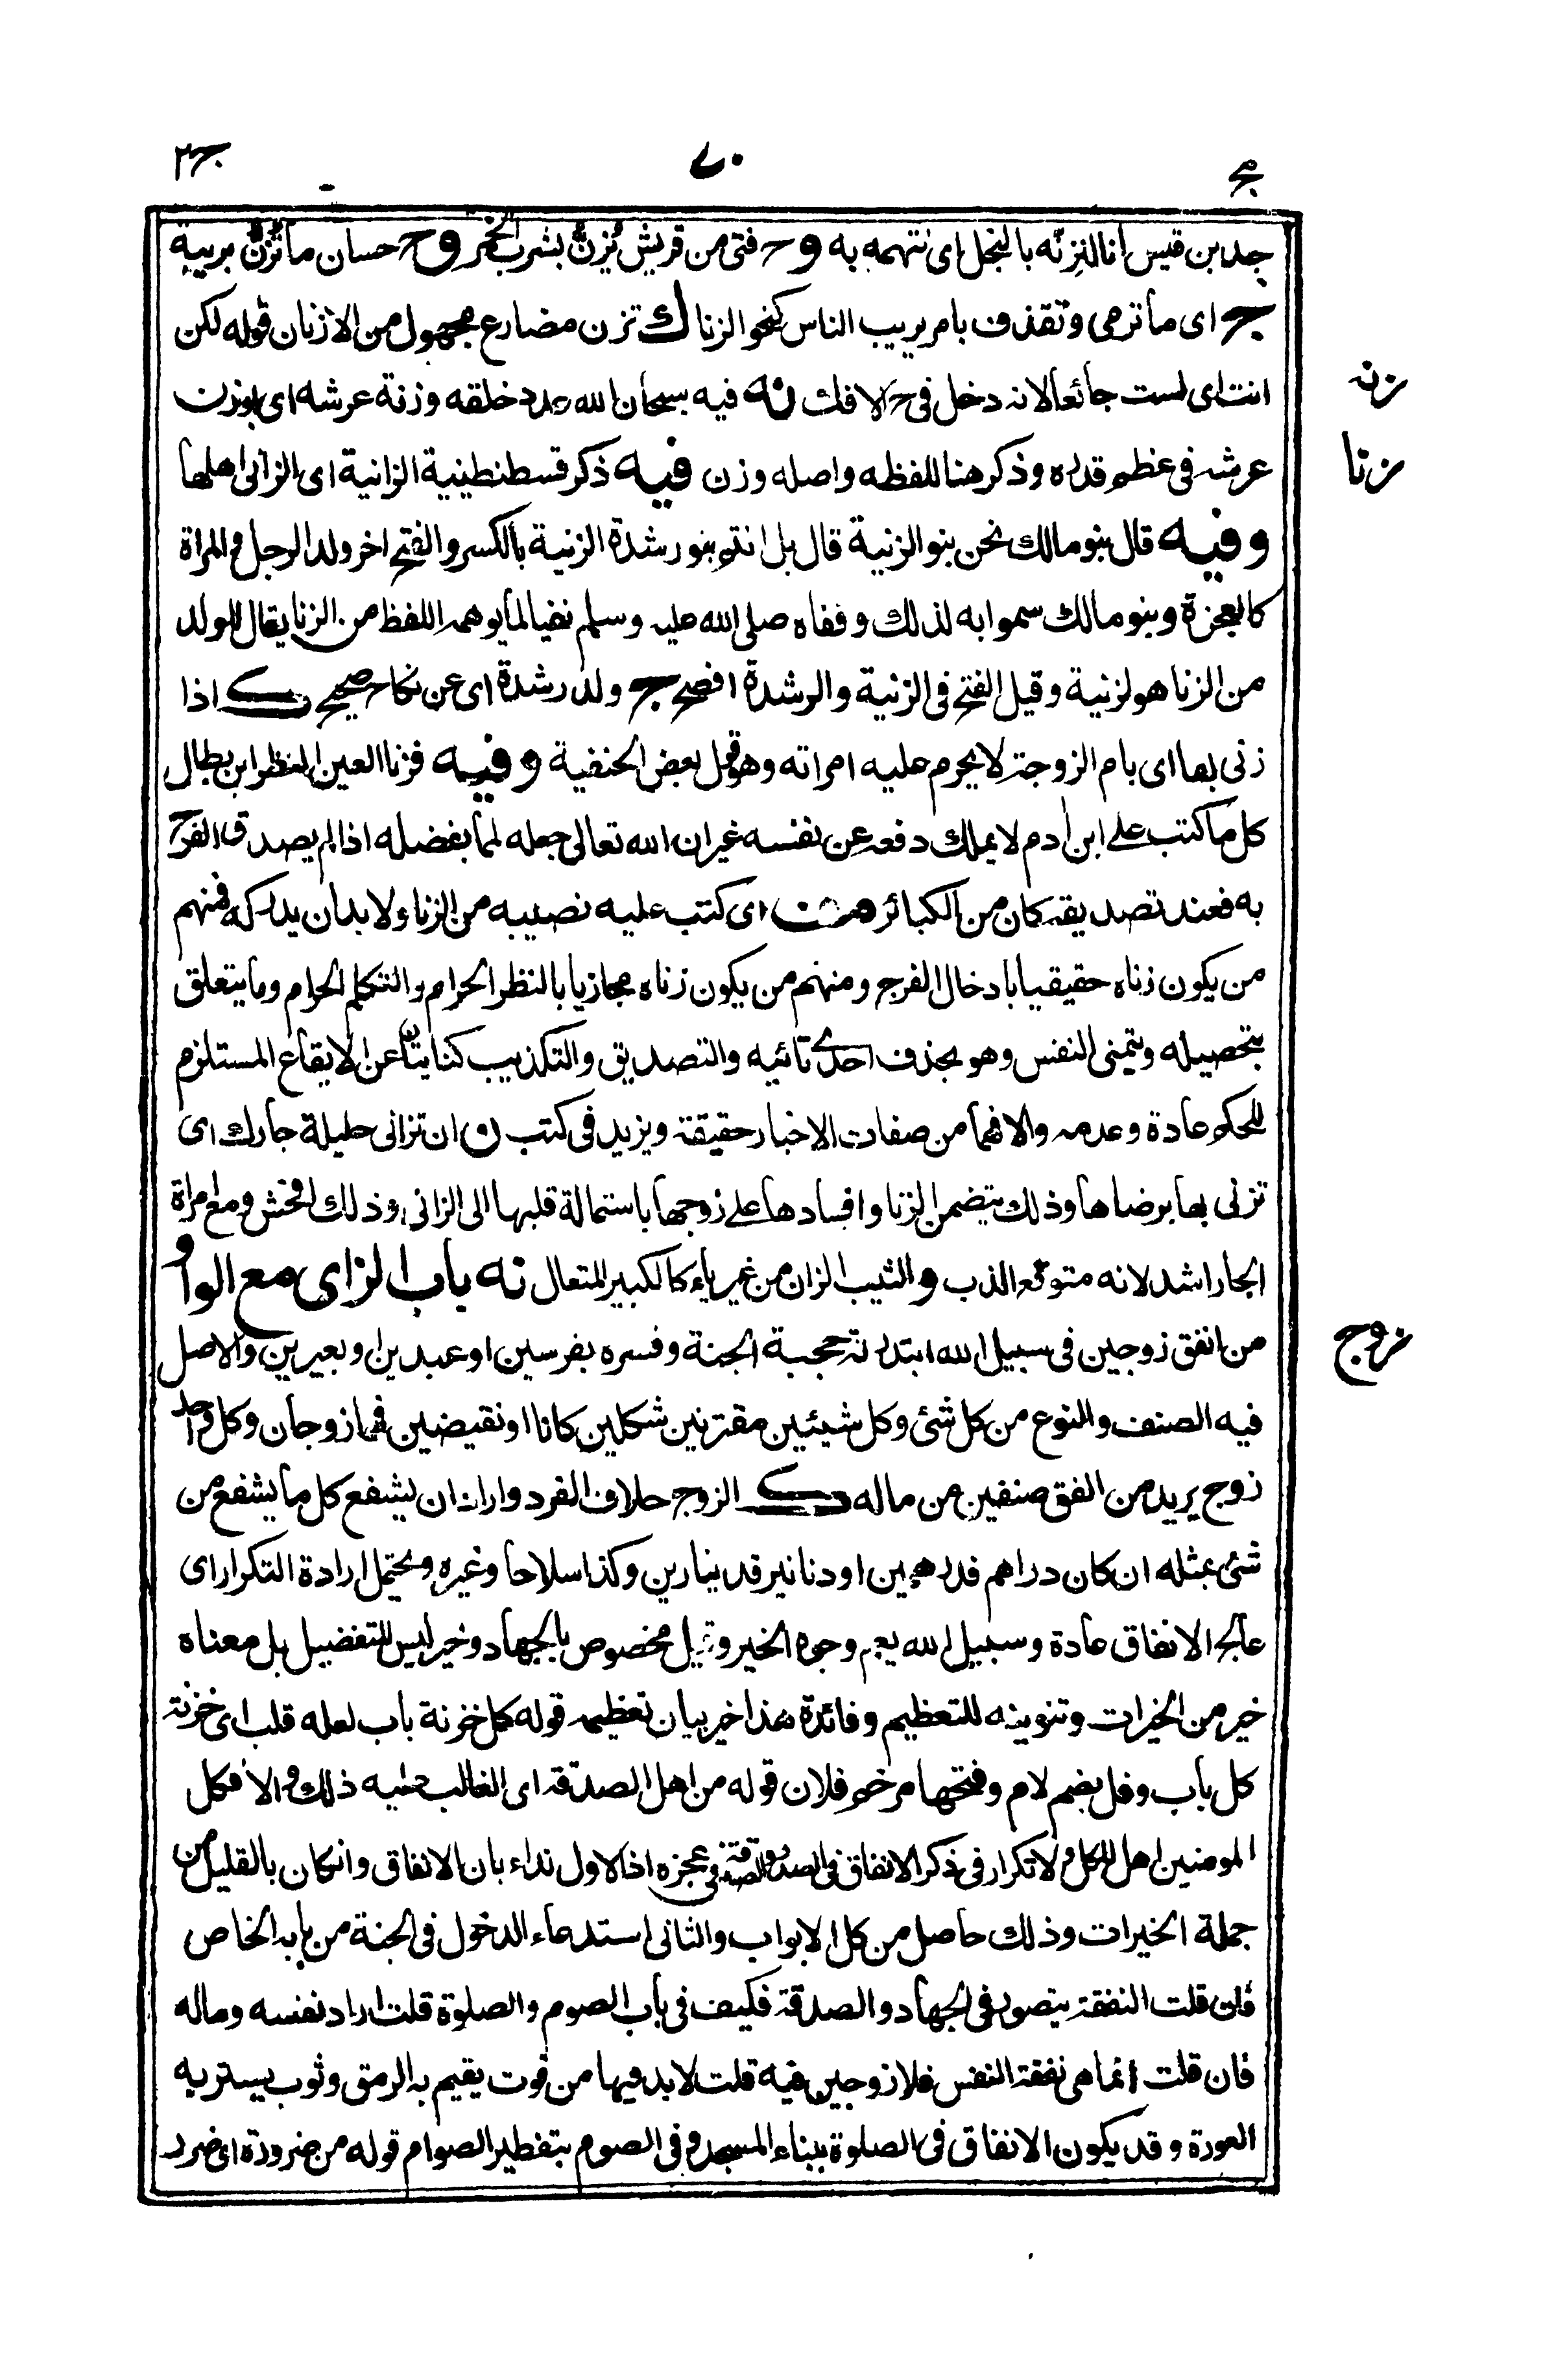 ج٢
٧٠
مج
جد بن قيس انا لنزنّه بالبخل اى نتهمه به وح فتى من قريش يُزنُّ بشرب الخمر وح حسان ما تُزنُّ بريبة
ج اى ما ترمى وتقذف بامر يريب الناس كنحو الزنا ك تزن مضارع مجهول من الازنان قوله لكن
زنه
انت اى لست جائعا لانه دخل فى ح الافك نه فيه سبحان الله عدد خلقه وزنة عرشه اى بوزن
زنا
عرشه فى عظم قدره وذكر هنا للفظه واصله وزن فيه ذكر قسطنطينية الزانية اى الزانى اهلها
وفيه قال بنو مالك نحن بنو الزنية قال بل انتم بنو رشدة الزنية بالكسر والفتح اخر ولد الرجل والمراة
كالعجزة وبنو مالك سموا به لذلك ونفاه صلى الله عليه وسلم نفيا لما يوهمه اللفظ من الزنا يقال للولد
من الزنا هو لزنية وقيل الفتح فى الزنية والرشدة افصح ج ولد رشدة اى عن نكاح صحيح ك اذا
زنى بها اى بام الزوجة لا يحرم عليه امراته وهو قول بعض الحنفية وفيه فزنا العين النظر ابن بطال
كل ما كتب على ابن ادم لا يملك دفعه عن نفسه غير ان الله تعالى جعله لمما بفضله اذا لم يصدق الفرج
به فعند تصديقه كان من الكبائر اى كتب عليه نصيبه من الزنا ولا بد ان يدركه فمنهم
من يكون زناه حقيقيا بادخال الفرج ومنهم من يكون زناه مجازيا بالنظر الحرام والتكلم الحرام وما يتعلق
بتحصيله وتمنى النفس وهو بحذف احدى تائيه والتصديق والتكذيب كنايتان عن الايقاع المستلزم
للحكم عادة وعدمه والا فهما من صفات الاخبار حقيقة ويزيد فى كتب ن ان تزانى حليلة جارك اى
تزنى بها برضاها وذلك يتضمن الزنا وافسادها على زوجها باستمالة قلبها الى الزانى وذلك افحش ومع امراة
الجار اشد لانه متوقع الذب والثيب الزان من غير ياء كالكبير المتعال نه باب الزاى مع الواو
زوج
من انفق زوجين فى سبيل الله ابتدرته حجبة الجنة وفسره بفرسين او عبدين او بعيرين والاصل
فيه الصنف والنوع من كل شئ وكل شيئين مقترنين شكلين كانا او نقيضين فهما زوجان وكل واحد
زوج يريد من انفق صنفين من ماله ك الزوج خلاف الفرد واراد ان يشفع كل ما يشفع من
شئ بمثله ان كان دراهم فدرهمين او دنانير فدينارين وكذا سلاحا وغيره ويحتمل ارادة التكرار اى
عالج الانفاق عادة وسبيل الله يعم وجوه الخير وقيل مخصوص بالجهاد وخير ليس للتفضيل بل معناه
خير من الخيرات وتنوينه للتعظيم وفائدة هذا خير بيان تعظيمه قوله كل خزنة باب لعله قلب اى خزنة
كل باب وفل بضم لام وفتحها مرخم فلان قوله من اهل الصدقة اى الغالب عليه ذلك والا فكل
المومنين اهل للكل ولا تكرار فى ذكر الانفاق فى الصدر والصدقة فى عجزه اذ الاول نداء بان الانفاق وان كان بالقليل من
جملة الخيرات وذلك حاصل من كل الابواب والثانى استدعاء الدخول فى الجنة من بابه الخاص
فان قلت النفقة يتصور فى الجهاد والصدقة فكيف فى باب الصوم والصلوة قلت اراد نفسه وماله
فان قلت انما هى نفقة النفس فلا زوجين فيه قلت لا بد فيها من قوت يقيم به الرمق وثوب يستر به
العورة وقد يكون الانفاق فى الصلوة ببناء المسجد وفى الصوم بتفطير الصوام قوله من ضرورة اى ضرر